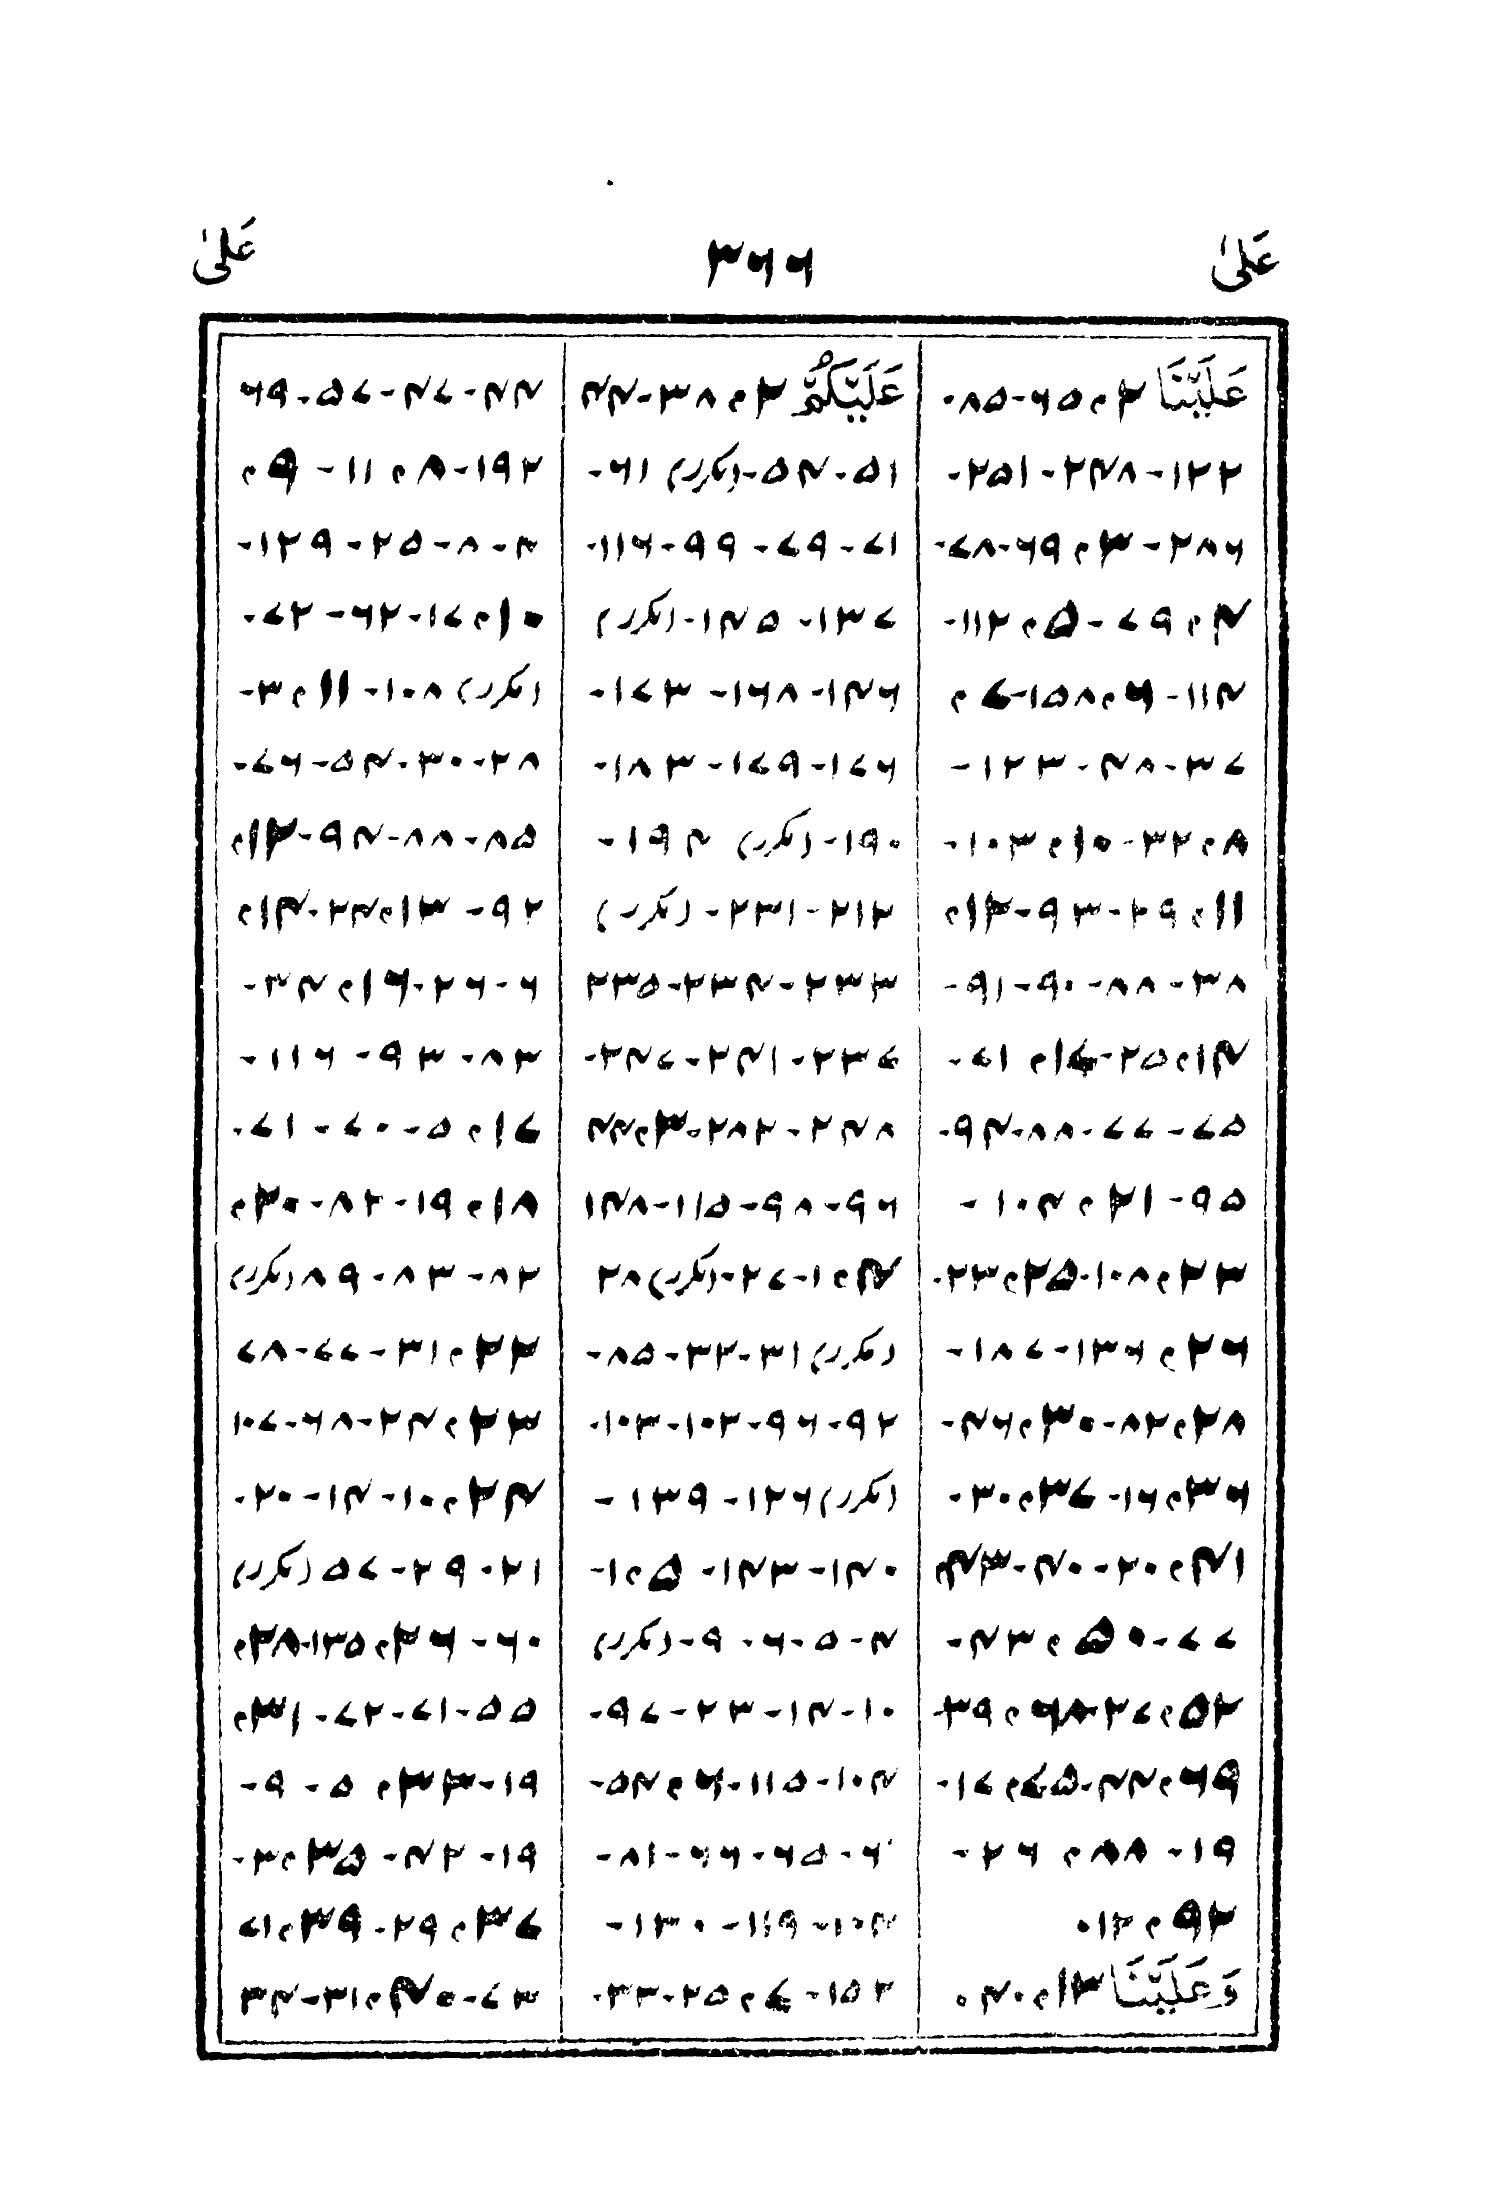 عَلىٰ
۳۶۶
عَلىٰ
عَلَيْنَا ۲؍۶۵-۸۵-
۱۲۲-۲۴۸-۲۵۱-
۲۸۶-۳؍۶۹-۷۸-
۴؍۷۹-۵؍۱۱۲-
۱۱۴-۶؍۱۵۸-۷؍
۳۷-۴۸-۱۲۳-
۸؍۳۲-۱۰؍۱۰۳-
۱۱؍۲۹-۹۳-۱۲؍
۳۸-۸۸-۹۰-۹۱-
۱۴؍۲۵-۱۷؍۷۱-
۷۵-۷۷-۸۸-۹۴-
۹۵-۲۱؍۱۰۴-
۲۳؍۱۰۸-۲۵؍۲۳-
۲۶؍۱۳۶-۱۸۷-
۲۸؍۸۲-۳۰؍۴۶-
۳۶؍۱۶-۳۷؍۳۰-
۴۱؍۲۰-۴۰-۴۳؍
۷۷-۵۰؍۴۳-
۵۲؍۲۷-۶۸؍۳۹
۶۹؍۴۴-۷۵؍۱۷-
۱۹-۸۸؍۲۶-
۹۲؍۱۲-
وَعَلَيْنَا ۱۳؍۴۰
عَلَيْكُمْ ۲؍۳۸-۴۴
۵۱-۵۴-(مکرر) ۶۱-
۷۱-۷۹-۹۹-۱۱۶-
۱۳۷-۱۴۵-(مکرر)
۱۴۶-۱۶۸-۱۷۳-
۱۷۶-۱۷۹-۱۸۳-
۱۹۰-(مکرر) ۱۹۴-
۲۱۲-۲۳۱-(مکرر)
۲۳۳-۲۳۴-۲۳۵
۲۳۷-۲۴۱-۲۴۷-
۲۴۸-۲۸۲-۳؍۴۴
۹۶-۹۸-۱۱۵-۱۴۸
۴؍۱-۲۷-(مکرر) ۲۸
(مکرر) ۳۱-۳۲-۸۵-
۹۲-۹۶-۱۰۲-۱۰۳-
(مکرر) ۱۲۶-۱۳۹-
۱۴۰-۱۴۳-۵؍۱-
۴-۵-۶-۹-(مکرر)
۱۰-۱۴-۲۳-۹۷-
۱۰۴-۱۱۵-۶؍۵۴-
۶-۶۵-۶۶-۸۱-
۱۰۴-۱۱۹-۱۳۰-
۱۵۲-۷؍۲۵-۳۳-
۴۴-۴۷-۵۷-۶۹
۱۹۲-۸؍۱۱-۹؍
۳-۸-۲۵-۱۲۹-
۱۰؍۱۷-۶۲-۷۲-
(مکرر) ۱۰۸-۱۱؍۳-
۲۸-۳۰-۵۴-۷۶-
۸۵-۸۸-۹۴-۱۲؍
۹۲-۱۳؍۲۴-۱۴؍
۶-۲۶-۱۶؍۴۳-
۸۳-۹۳-۱۱۶-
۱۷؍۵-۷۰-۷۱-
۱۸؍۱۹-۸۲-۲۰؍
۸۲-۸۳-۸۹ (مکرر)
۲۲؍۳۱-۷۷-۷۸
۲۳؍۲۴-۶۸-۱۰۷
۲۴؍۱۰-۱۴-۲۰-
۲۱-۲۹-۵۷ (مکرر)
۶۰-۲۶؍۱۳۵-۲۸؍
۵۵-۷۱-۷۲-۳۱؍
۱۹-۳۳؍۵-۹-
۱۹-۴۲-۳۵؍۳-
۳۷؍۲۹-۳۹؍۷۱
۷۳-۴۰؍۳۱-۴۳